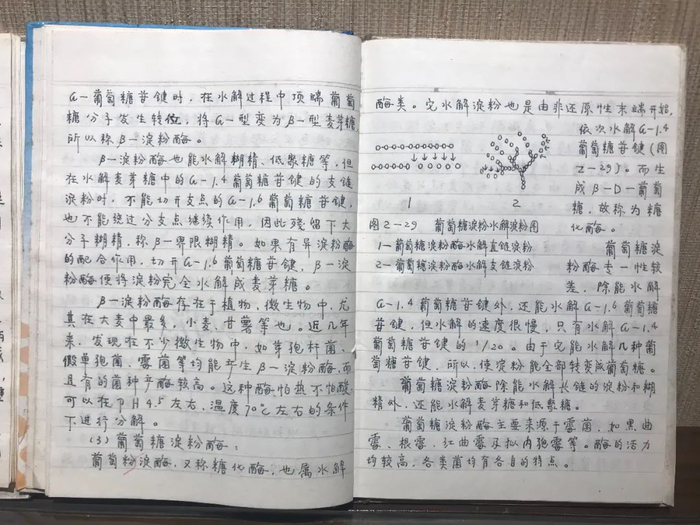 α-葡萄糖苷键时，在水解过程中顶端葡萄
糖分子发生转位，将α-型变为β-型麦芽糖
所以称β-淀粉酶。
β-淀粉酶也能水解糊精、低聚糖等，但
在水解麦芽糖中的α-1.4葡萄糖苷键的支链
淀粉时，不能切开支点的α-1.6葡萄糖苷键，
也不能绕过分支点继续作用，因此残留下大
分子糊精，称β-界限糊精。如果有异淀粉酶
的配合作用，切开α-1.6葡萄糖苷键，β-淀
粉酶便将淀粉完全水解成麦芽糖。
β-淀粉酶存在于植物，微生物中，尤
其在大麦中最多，小麦、甘薯等也。近几年
来，发现在不少微生物中，如芽孢杆菌、
假单孢菌、霉菌等均能产生β-淀粉酶，而
且有的菌种产酶较高。这种酶怕热不怕酸
可以在PH4.5左右，温度70℃左右的条件
下进行分解。
(3)葡萄糖淀粉酶：
葡萄粉淀酶，又称糖化酶，也属水解
酶类。它水解淀粉也是由非还原性末端开始，
依次水解α-1.4
葡萄糖苷键(图
2-29)。而生
成β-D-葡萄
糖，故称为糖
化酶。
1 2
图2-29 葡萄糖淀粉水解淀粉图
1-葡萄糖淀粉酶水解直链淀粉
2-葡萄糖淀粉酶水解支链淀粉
葡萄糖淀
粉酶专一性较
差，除能水解
α-1.4葡萄糖苷键外，还能水解α-1.6葡萄糖
苷键，但水解的速度很慢，只有水解α-1.4
葡萄糖苷键的1/20。由于它能水解几种葡
萄糖苷键，所以，使淀粉能全部转变成葡萄糖。
葡萄糖淀粉酶除能水解长链的淀粉和糊
精外，还能水解麦芽糖和低聚糖。
葡萄糖淀粉酶主要来源于霉菌，如黑曲
霉、根霉、红曲霉及拟内孢霉等。酶的活力
均较高，各类菌均有各自的特点。